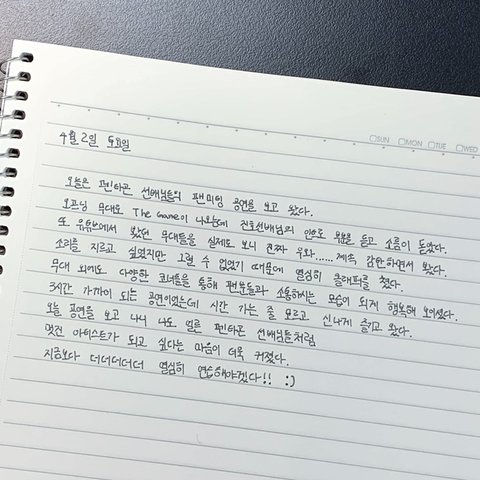 □SUN □MON □TUE □WED
4월 2일 토요일
오늘은 펜타곤 선배님들의 팬미팅 공연을 보고 왔다.
오프닝 무대로 The Game이 나오는데 진호선배님의 인트로 부분을 듣고 소름이 돋았다.
또 유튜브에서 봤던 무대들을 실제로 보니 진짜 우와...... 계속 감탄하면서 봤다.
소리를 지르고 싶었지만 그럴 수 없었기 때문에 열심히 클래퍼를 쳤다.
무대 외에도 다양한 코너들을 통해 팬분들과 소통하시는 모습이 되게 행복해 보이셨다.
3시간 가까이 되는 공연이었는데 시간 가는 줄 모르고 신나게 즐기고 왔다.
오늘 공연을 보고 나니 나도 얼른 펜타곤 선배님들처럼
멋진 아티스트가 되고 싶다는 마음이 더욱 커졌다.
지금보다 더더더더더 열심히 연습해야겠다!! :)